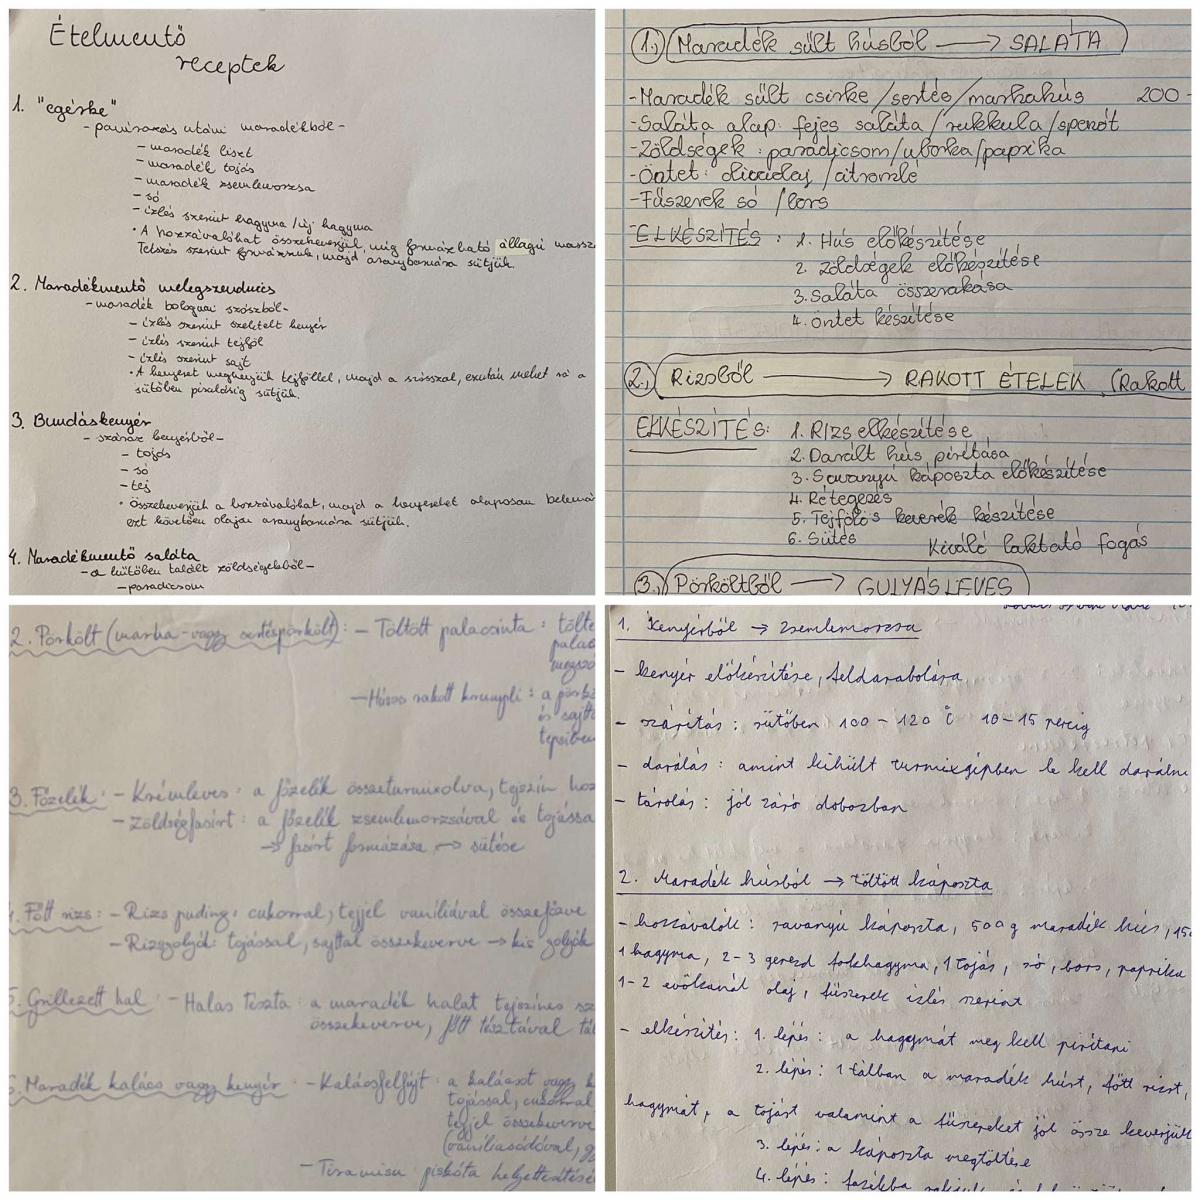 Ételmentő
receptek
1. "egérke"
- panírozás utáni maradékból -
- maradék liszt
- maradék tojás
- maradék zsemlemorzsa
- só
- ízlés szerint hagyma / új hagyma
• A hozzávalókat összekeverjük, míg formázható állagú massz
Tetszés szerint formázzuk, majd aranybarnára sütjük.
2. Maradékmentő melegszendvics
- maradék bolognai szószból -
- ízlés szerint szeletelt kenyér
- ízlés szerint tejföl
- ízlés szerint sajt
• A kenyeret megkenjük tejföllel, majd a szósszal, ezután mehet rá a
sütőben pirulásig sütjük.
3. Bundáskenyér
- száraz kenyérből -
- tojás
- só
- tej
• Összekeverjük a hozzávalókat, majd a kenyereket alaposan belemá
ezt követően olajai aranybarnára sütjük.
4. Maradékmentő saláta
- a hűtőben talált zöldségekből -
- paradicsom
1.) Maradék sült húsból → SALÁTA
- Maradék sült csirke / sertés / marhahús 200 -
- Saláta alap: fejes saláta / rukkula / spenót
- Zöldségek: paradicsom / uborka / paprika
- Öntet: olívaolaj / citromlé
- Fűszerek só / bors
- ELKÉSZÍTÉS: 1. Hús előkészítése
2. Zöldségek előkészítése
3. Saláta összerakása
4. Öntet készítése
2.) Rizsből → RAKOTT ÉTELEK (Rakott
ELKÉSZÍTÉS: 1. Rizs elkészítése
2. Darált hús pirítása
3. Savanyú káposzta előkészítése
4. Rétegezés
5. Tejfölös keverék készítése
6. Sütés Kiváló laktató fogás
3.) Pörköltből → GULYÁSLEVES
2. Pörkölt (marha- vagy sertéspörkölt): - Töltött palacsinta: tölte
palac
megszó
- Húsos rakott krumpli: a pörkö
és sajtta
tepsiben
3. Főzelék: - Krémleves: a főzelék összeturmixolva, tejszín hoz
- Zöldségfasírt: a főzelék zsemlemorzsával és tojássa
→ fasírt formázása → sütése
4. Főtt rizs: - Rizs puding: cukorral, tejjel vaníliával összefőzve
- Rizsgolyók: tojással, sajttal összekeverve → kis golyók
5. Grillezett hal - Halas tészta: a maradék halat tejszínes sz
összekeverve, főtt tésztával tál
6. Maradék kalács vagy kenyér - Kalácsfelfújt: a kalácsot vagy k
tojással, cukorral
tejjel összekeverve
(vaníliasodóval, g
- Tiramisu piskóta helyettesítésé
1. Kenyérből → Zsemlemorzsa
- kenyér előkészítése, feldarabolása
- szárítás: sütőben 100 - 120 °C 10-15 percig
- darálás: amint kihűlt turmixgépben le kell darálni
- tárolás: jól záró dobozban
2. Maradék húsból → töltött káposzta
- hozzávalók: savanyú káposzta, 500 g maradék hús, 150
1 hagyma, 2-3 gerezd fokhagyma, 1 tojás, só, bors, paprika
1-2 evőkanál olaj, fűszerek ízlés szerint
- elkészítés: 1. lépés: a hagymát meg kell pirítani
2. lépés: 1 tálban a maradék húst, főtt rizst,
hagymát, a tojást valamint a fűszereket jól össze keverjük
3. lépés: a káposzta megtöltése
4. lépés: fazékba